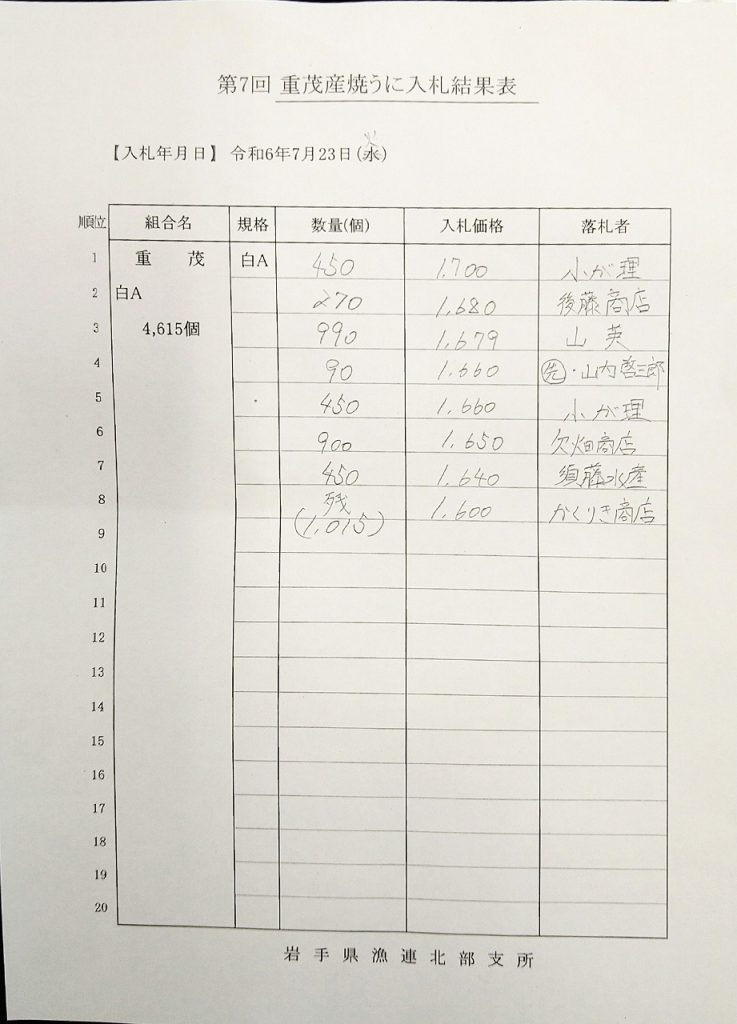 第7回 重茂産焼うに入札結果表
【入札年月日】 令和6年7月23日(水)
火
順位 組合名 規格 数量(個) 入札価格 落札者
1 重 茂 白A 450 1.700 小が理
2 白A 270 1,680 後藤商店
3 4,615個 990 1,679 山英
4 90 1.660 ㊛・山内啓三郎
5 450 1.660 小が理
6 900 1.650 欠畑商店
7 450 1.640 須藤水産
8 残 1.600 かくりき商店
9 (1,015)
10
11
12
13
14
15
16
17
18
19
20
岩手県漁連北部支所